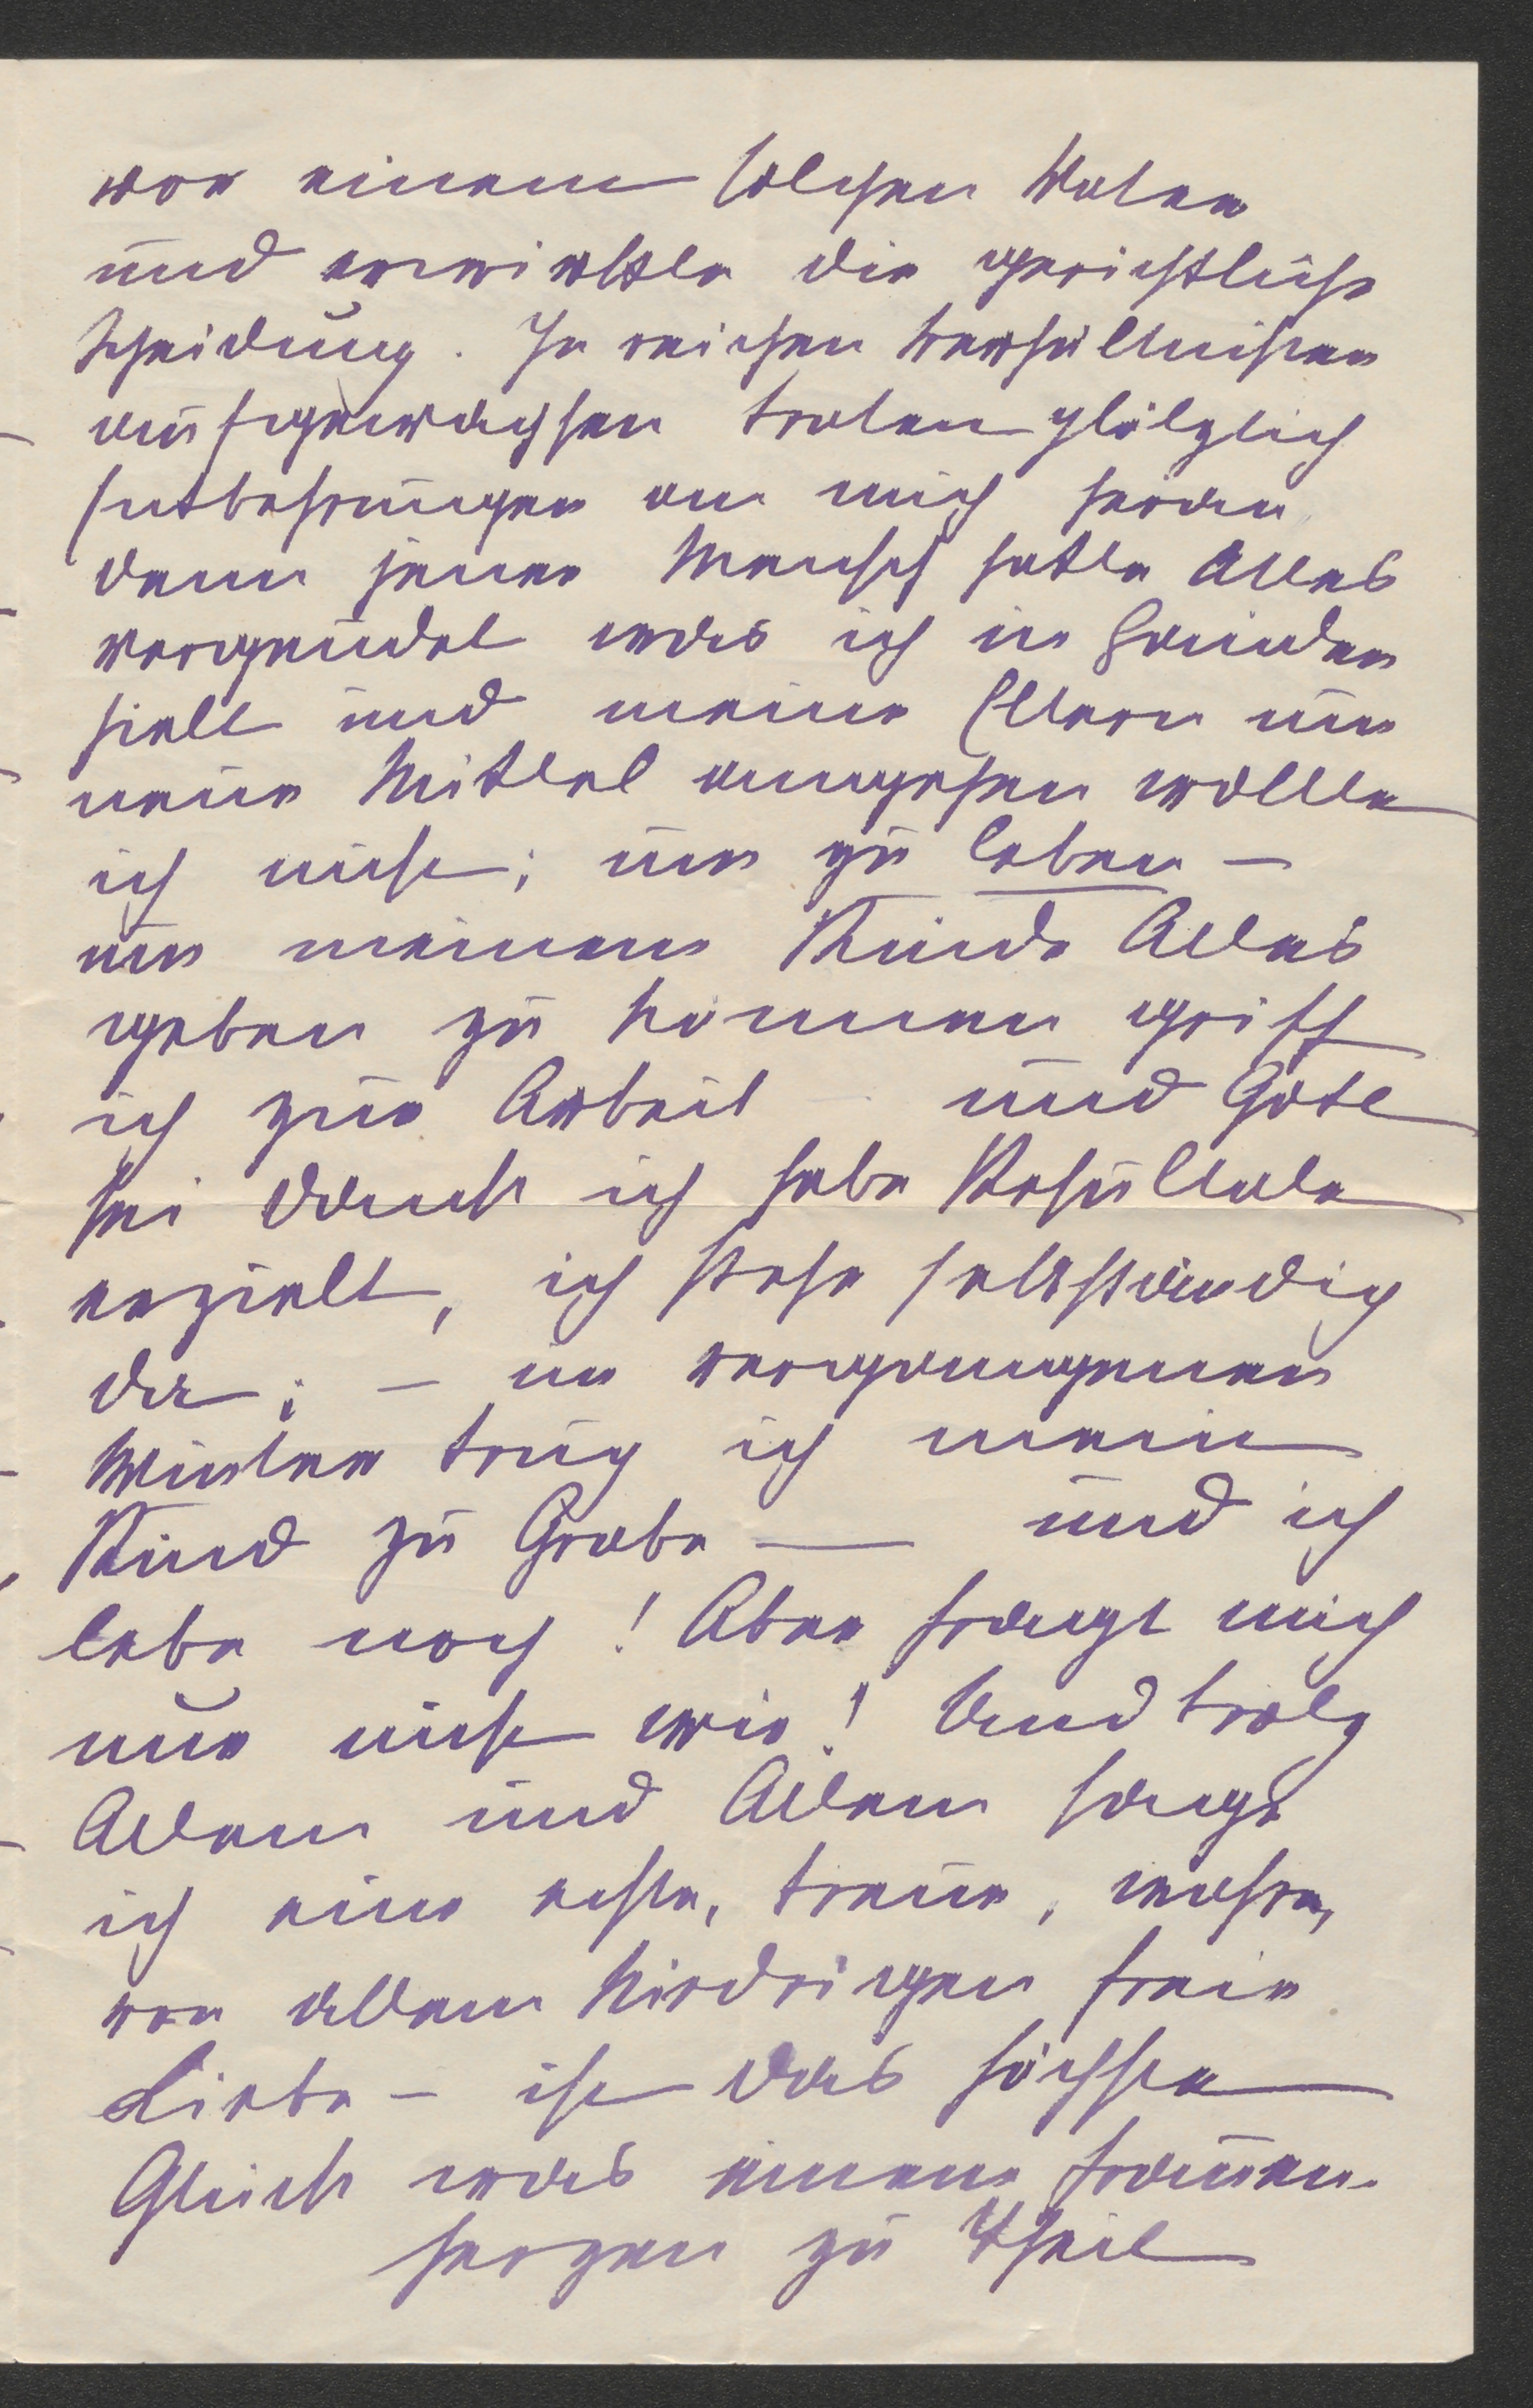 vor einem solchen Vater
und erwirkte die gerichtliche
Scheidung. In reichen Verhältnissen
aufgewachsen traten plötzlich
Entbehrungen an mich heran
denn jener Mensch hatte Alles
vergeudet was ich in Händen
hielt und meine Eltern um
neue Mittel anngehen wollte
ich nicht; um zu leben –
um meinem Kinde Alles
geben zu können griff
ich zur Arbeit und Gott
sei Dank ich habe Resultate
erzielt, ich stehe selbständig
da; – im vergangenen
Winter trug ich mein
Kind zu Grabe — und ich
lebe noch! Aber fragt mich
nur nicht wie! Und trotz
Allem und Allem sage
ich eine echte, treue, wahre,
von allem Niedrigen freie
Liebe – ist das höchste
Glück was einem Frauen-
herzen zu Theil